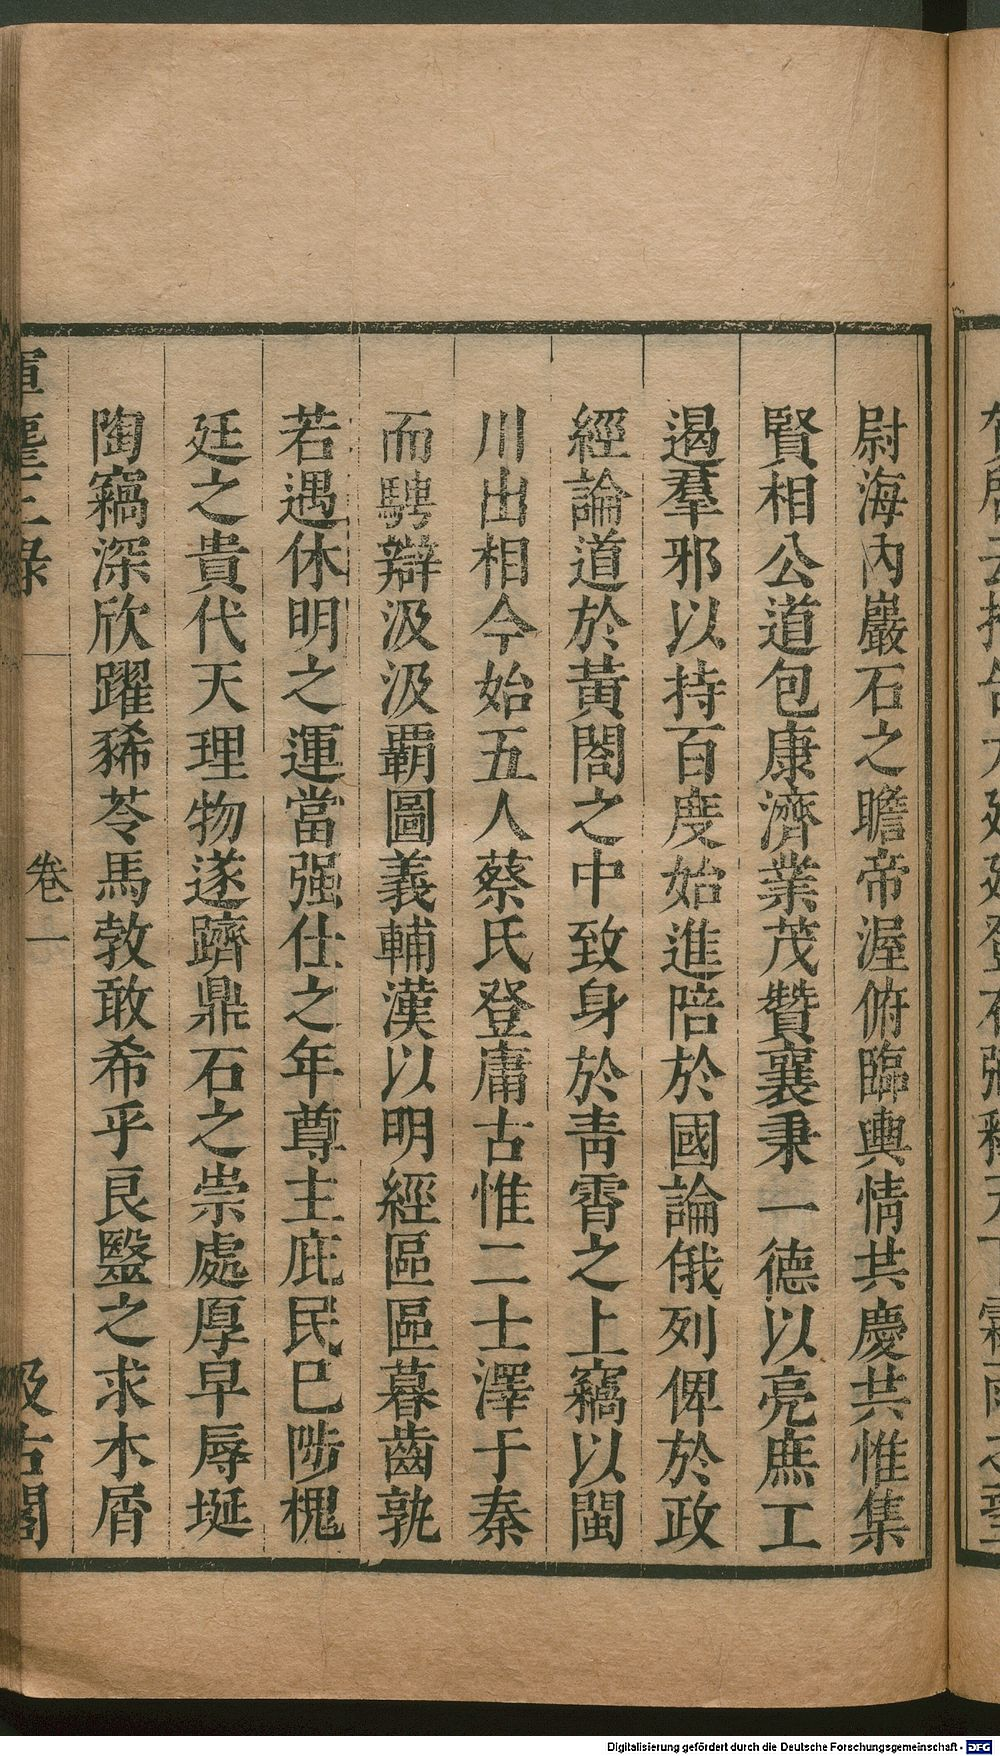 尉海內巖石之瞻帝渥俯臨輿情共慶共惟集
賢相公道包康濟業茂贊襄秉一德以亮庶工
遏羣邪以持百度始進陪於國論俄列俾於政
經論道於黃閣之中致身於靑霄之上竊以閩
川出相今始五人蔡氏登庸古惟二士澤于秦
而騁辯汲汲覇圖義輔漢以明經區區暮齒孰
若遇休明之運當强仕之年尊主庇民巳陟槐
廷之貴代天理物遂躋鼎石之崇處厚早辱埏
陶竊深欣躍豨苓馬勃敢希乎良毉之求木屑
卷一
汲古閣
Digitalisierung gefördert durch die Deutsche Forschungsgemeinschaft - DFG